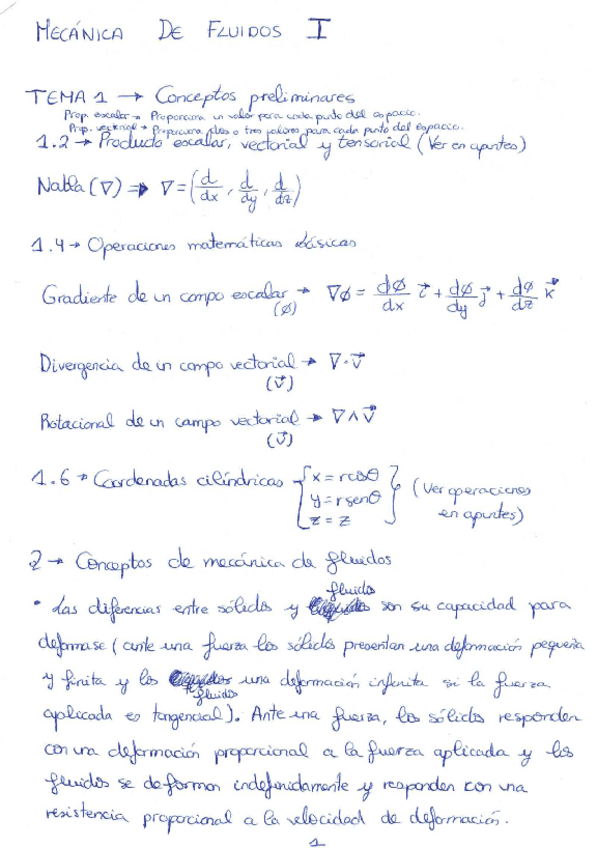 MECÁNICA DE FLUIDOS I
TEMA 1 → Conceptos preliminares
Prop. escalar → Proporciona un valor para cada punto del espacio.
Prop. vectorial → Proporciona dos o tres valores para cada punto del espacio.
1.2 → Producto escalar, vectorial y tensorial (Ver en apuntes)
Nabla (∇) ⇒ ∇ = (d/dx, d/dy, d/dz)
1.4 → Operaciones matemáticas básicas
Gradiente de un campo escalar → ∇φ = dφ/dx i⃗ + dφ/dy j⃗ + dφ/dz k⃗
(φ)
Divergencia de un campo vectorial → ∇·v⃗
(v⃗)
Rotacional de un campo vectorial → ∇∧v⃗
(v⃗)
1.6 → Coordenadas cilíndricas { x = rcosθ
y = rsenθ
z = z } (Ver operaciones
en apuntes)
2 → Conceptos de mecánica de fluidos
• Las diferencias entre sólidos y fluidos son su capacidad para
deformase (ante una fuerza los sólidos presentan una deformación pequeña
y finita y los fluidos una deformación infinita si la fuerza
aplicada es tangencial). Ante una fuerza, los sólidos responden
con una deformación proporcional a la fuerza aplicada y los
fluidos se deforman indefinidamente y responden con una
resistencia proporcional a la velocidad de deformación.
1